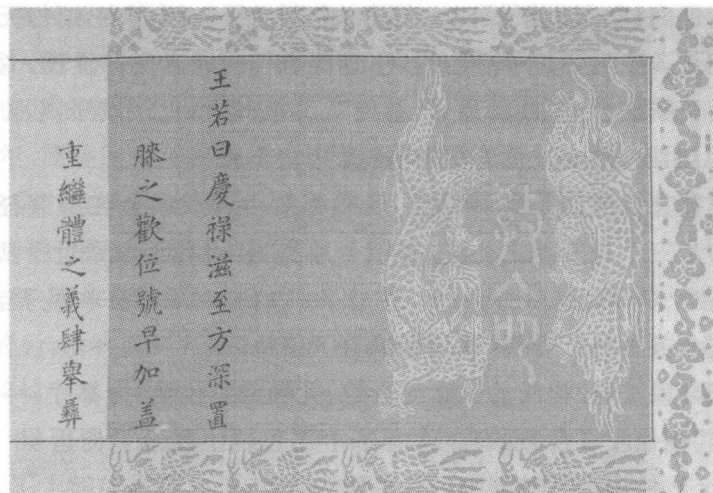 王若曰慶祿滋至方深置
膝之歡位號早加盖
重繼體之義肆舉彝